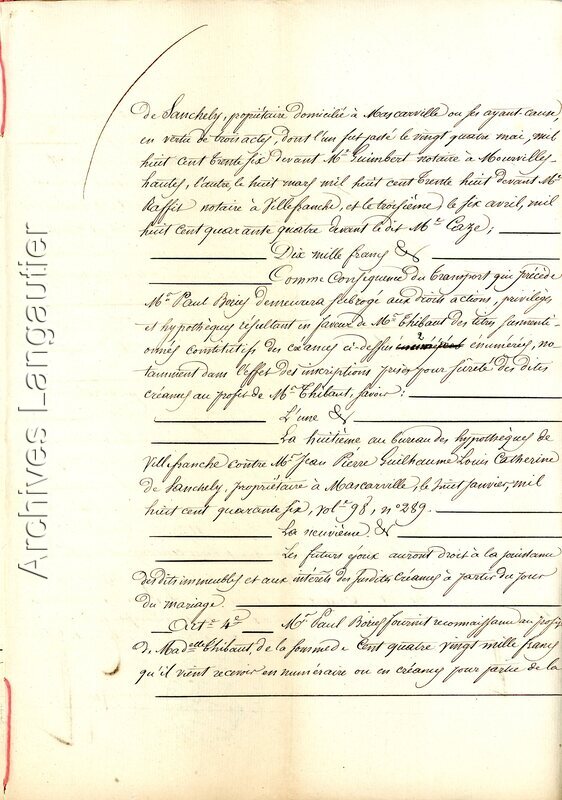 de Sanchely, propriétaire domicilié à Mascarville ou ses ayant-cause,
en vertu de trois actes, dont l'un fut passé le vingt quatre mai, mil
huit cent trente six devant Me Guimbert notaire à Mourvilles
hautes, l'autre, le huit mars mil huit cent trente huit devant Me
Raffit notaire à Villefranche, et le troisième le six avril, mil
huit cent quarante quatre devant le dit Me Caze;
Dix mille francs &
Comme conséquence du transport qui précède
Mr Paul Bories demeurera subrogé aux droits actions, privilèges
et hypothèques résultant en faveur de Mr Thibaut des titres susmenti-
onnés constitutifs des créances ci-dessus énumérées, no-
tamment dans l'effet des inscriptions prises pour sûreté des dites
créances au profit de Mr Thibaut, savoir:
L'une &
La huitième au bureau des hypothèques de
Villefranche contre Mr Jean Pierre Guilhaume Louis Catherine
de Sanchely, propriétaire à Mascarville, le huit janvier, mil
huit cent quarante six, vol. 98, no 289.
La neuvième &
Les futurs époux auront droit à la jouissance
des dits immeubles et aux intérêts des susdites créances à partir du jour
du mariage.
Art. 4e Mr Paul Bories fournit reconnaissance au profit
de Madelle Thibaut, de la somme de cent quatre vingt mille francs
qu'il vient recevoir en numéraire ou en créances pour partie de la
Archives Langautier